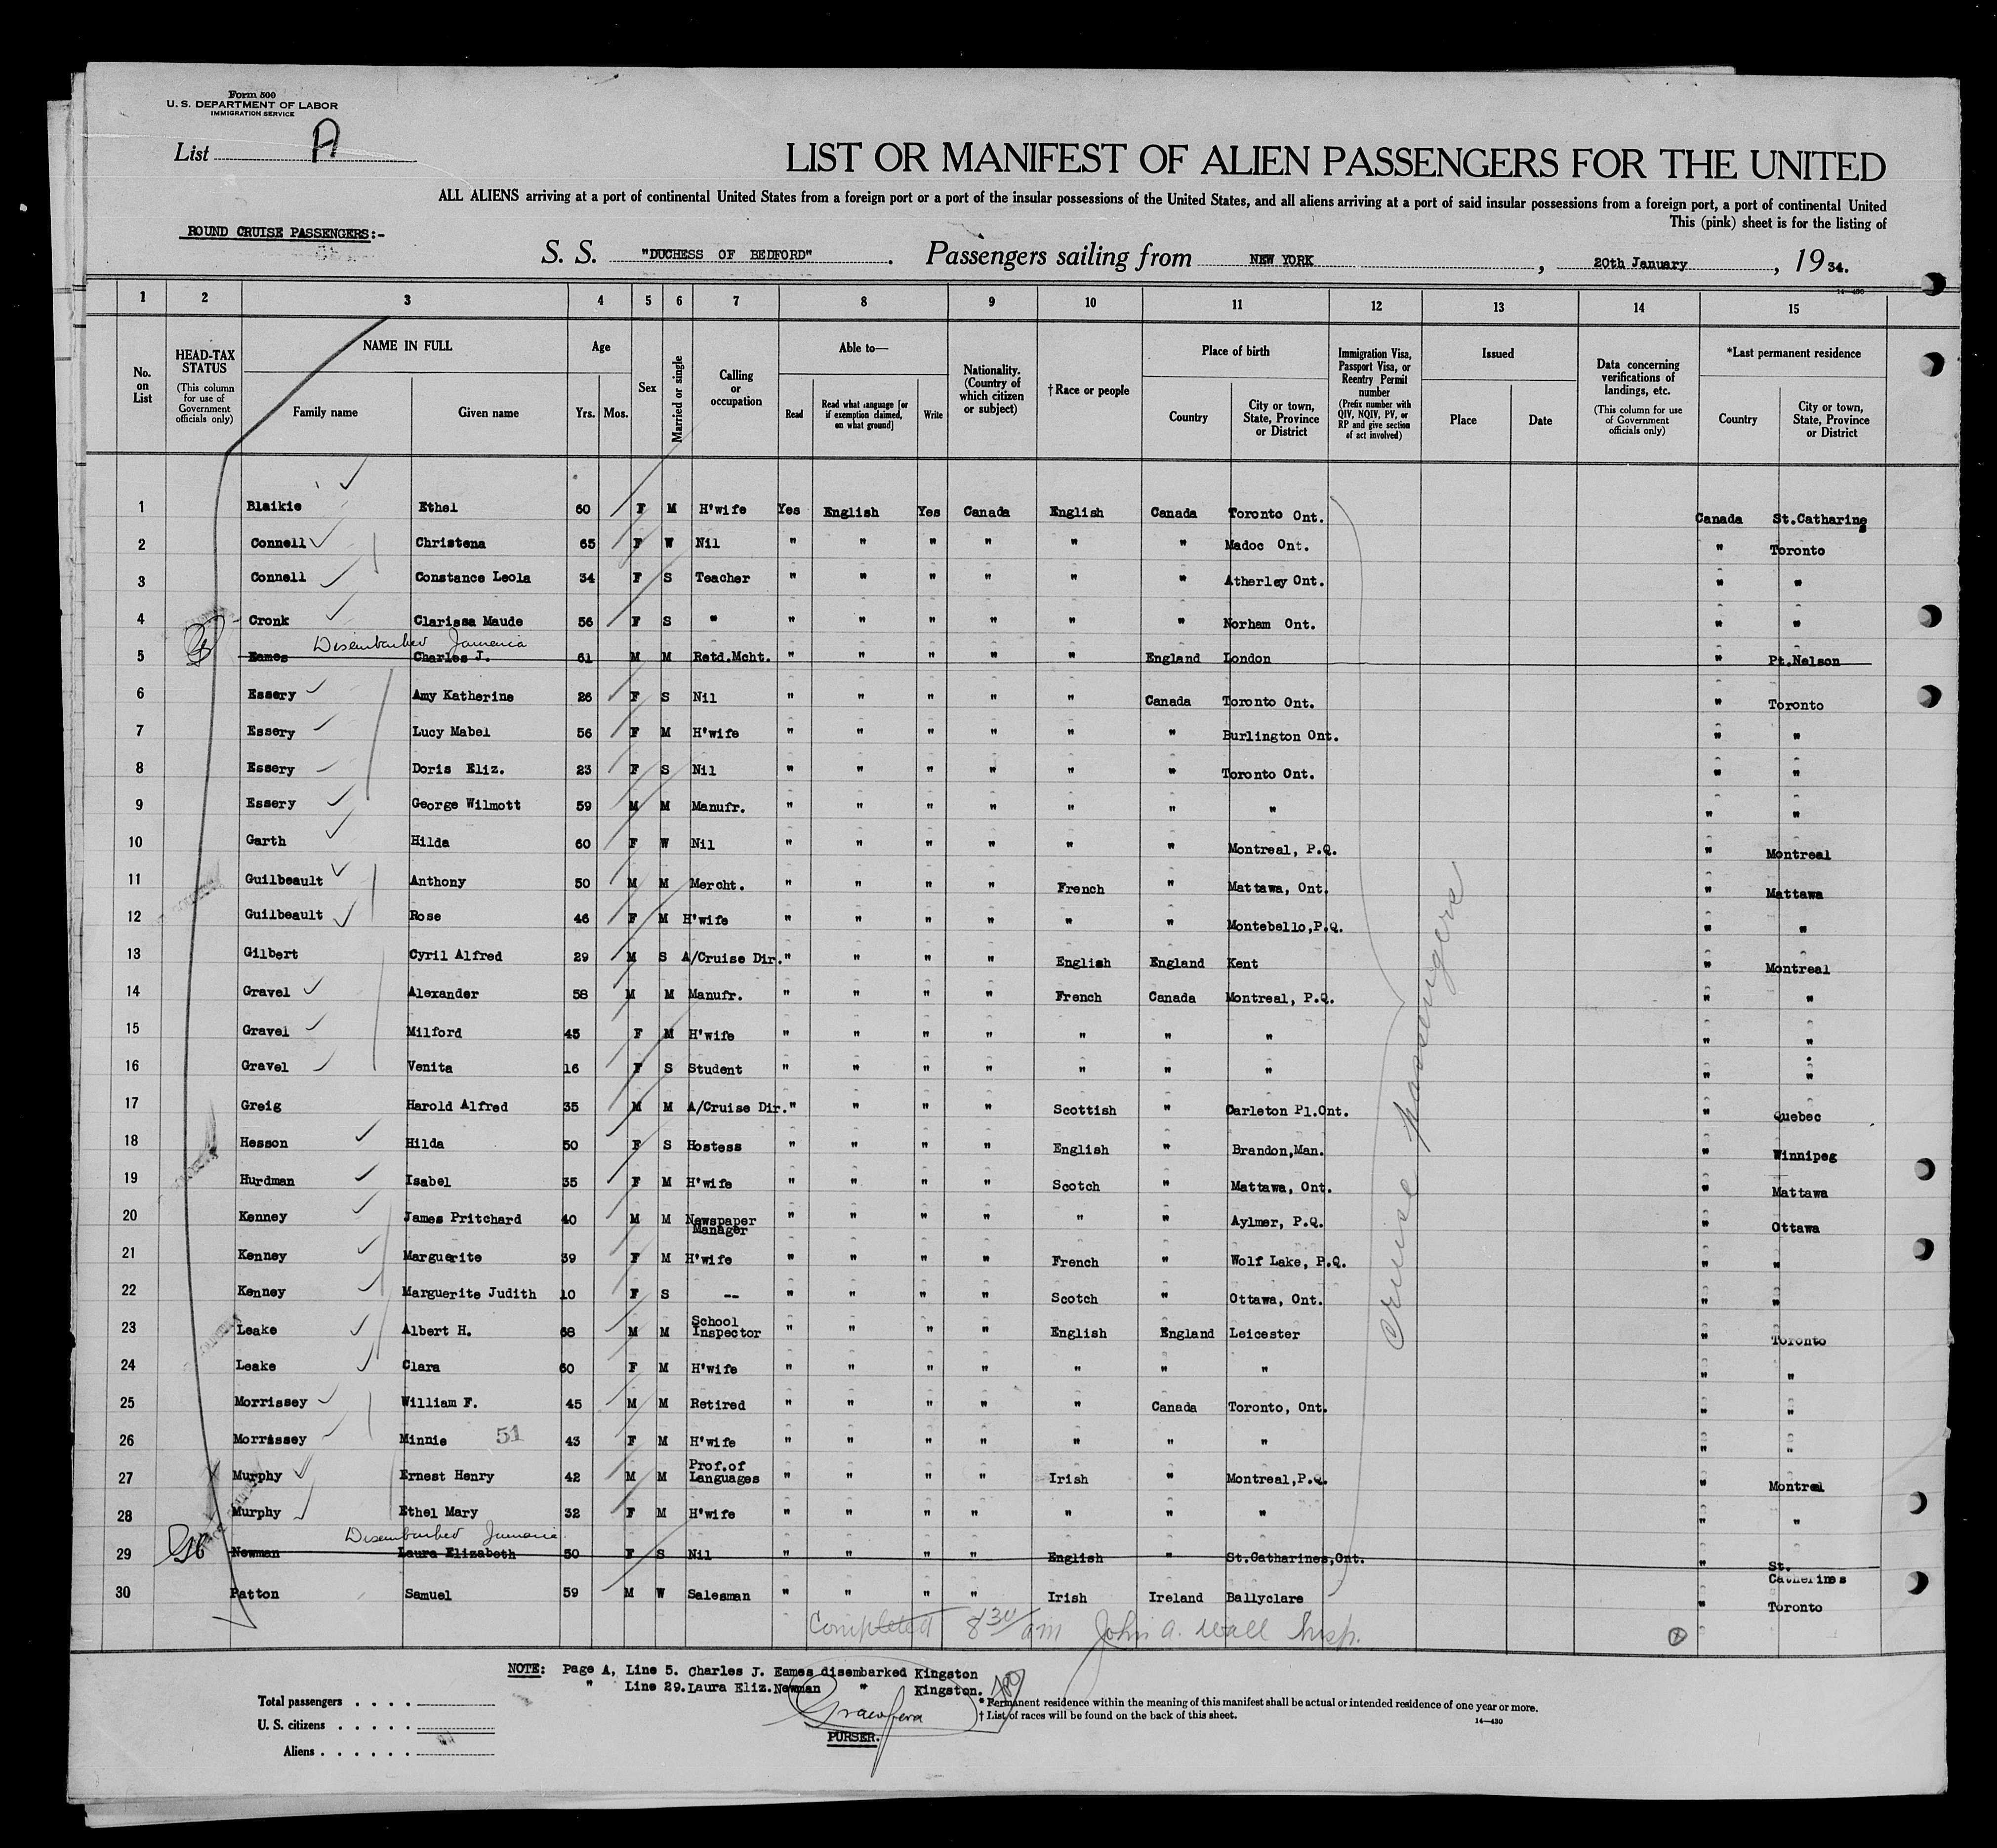 Form 500
U. S. DEPARTMENT OF LABOR
IMMIGRATION SERVICE
List A
LIST OR MANIFEST OF ALIEN PASSENGERS FOR THE UNITED
ALL ALIENS arriving at a port of continental United States from a foreign port or a port of the insular possessions of the United States, and all aliens arriving at a port of said insular possessions from a foreign port, a port of continental United
This (pink) sheet is for the listing of
ROUND CRUISE PASSENGERS:-
S. S. "DUCHESS OF BEDFORD" . Passengers sailing from NEW YORK , 20th January , 19 34.
14—430
1 2 3 4 5 6 7 8 9 10 11 12 13 14 15
No. on List
HEAD-TAX STATUS (This column for use of Government officials only)
NAME IN FULL
Family name Given name
Age
Yrs. Mos.
Sex
Married or single
Calling or occupation
Able to—
Read Read what language [or if exemption claimed, on what ground] Write
Nationality. (Country of which citizen or subject)
†Race or people
Place of birth
Country City or town, State, Province or District
Immigration Visa, Passport Visa, or Reentry Permit number (Prefix number with QIV, NQIV, PV, or RP and give section of act involved)
Issued
Place Date
Data concerning verifications of landings, etc. (This column for use of Government officials only)
*Last permanent residence
Country City or town, State, Province or District
1 Blaikie Ethel 60 F M H'wife Yes English Yes Canada English Canada Toronto Ont. Canada St.Catharine
2 Connell Christena 65 F W Nil " " " " " " Madoc Ont. " Toronto
3 Connell Constance Leola 34 F S Teacher " " " " " " Atherley Ont. " "
4 Cronk Clarissa Maude 56 F S " " " " " " " Norham Ont. " "
Disembarked Jamaica
5 Eames Charles J. 61 M M Retd.Mcht. " " " " " England London " Pt.Nelson
6 Essery Amy Katherine 26 F S Nil " " " " " Canada Toronto Ont. " Toronto
7 Essery Lucy Mabel 56 F M H'wife " " " " " " Burlington Ont. " "
8 Essery Doris Eliz. 23 F S Nil " " " " " " Toronto Ont. " "
9 Essery George Wilmott 59 M M Manufr. " " " " " " " " "
10 Garth Hilda 60 F W Nil " " " " " " Montreal, P.Q. " Montreal
11 Guilbeault Anthony 50 M M Mercht. " " " " French " Mattawa, Ont. " Mattawa
12 Guilbeault Rose 46 F M H'wife " " " " " " Montebello,P.Q. " "
13 Gilbert Cyril Alfred 29 M S A/Cruise Dir. " " " " English England Kent " Montreal
14 Gravel Alexander 58 M M Manufr. " " " " French Canada Montreal, P.Q. " "
15 Gravel Milford 45 F M H'wife " " " " " " " " "
16 Gravel Venita 16 F S Student " " " " " " " " "
17 Greig Harold Alfred 35 M M A/Cruise Dir. " " " " Scottish " Carleton Pl.Ont. " Quebec
18 Hesson Hilda 50 F S Hostess " " " " English " Brandon,Man. " Winnipeg
19 Hurdman Isabel 35 F M H'wife " " " " Scotch " Mattawa, Ont. " Mattawa
20 Kenney James Pritchard 40 M M Newspaper Manager " " " " " " Aylmer, P.Q. " Ottawa
21 Kenney Marguerite 39 F M H'wife " " " " French " Wolf Lake, P.Q. " "
22 Kenney Marguerite Judith 10 F S -- " " " " Scotch " Ottawa, Ont. " "
23 Leake Albert H. 68 M M School Inspector " " " " English England Leicester " Toronto
24 Leake Clara 60 F M H'wife " " " " " " " " "
25 Morrissey William F. 45 M M Retired " " " " " Canada Toronto, Ont. " "
26 Morrissey Minnie 51 43 F M H'wife " " " " " " " " "
27 Murphy Ernest Henry 42 M M Prof.of Languages " " " " Irish " Montreal,P.Q. " Montreal
28 Murphy Ethel Mary 32 F M H'wife " " " " " " " " "
Disembarked Jamaica
29 Newman Laura Elizabeth 50 F S Nil " " " " English " St.Catharines,Ont. " St. Catherines
30 Patton Samuel 59 M W Salesman " " " " Irish Ireland Ballyclare " Toronto
Cruise passengers
Completed 8 30/am John A. Wall Insp.
NOTE: Page A, Line 5. Charles J. Eames disembarked Kingston
" Line 29.Laura Eliz.Newman " Kingston.
Total passengers . . . .
U. S. citizens . . . . .
Aliens . . . . . .
PURSER.
* Permanent residence within the meaning of this manifest shall be actual or intended residence of one year or more.
† List of races will be found on the back of this sheet.
14—430